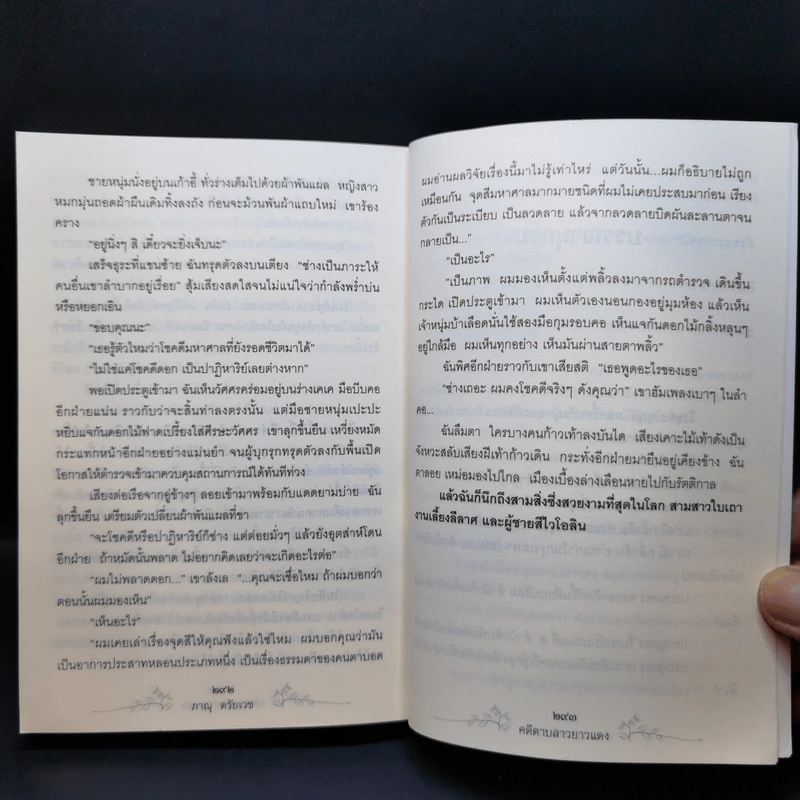 ชายหนุ่มนั่งอยู่บนเก้าอี้ ทั่วร่างเต็มไปด้วยผ้าพันแผล หญิงสาว
หมกมุ่นถอดผ้าผืนเดิมทิ้งลงถัง ก่อนจะม้วนพันผ้าแถบใหม่ เขาร้อง
คราง
“อยู่นิ่งๆ สิ เดี๋ยวจะยิ่งเจ็บนะ”
เสร็จธุระที่แขนซ้าย ฉันทรุดตัวลงบนเตียง “ช่างเป็นภาระให้
คนอื่นเขาลำบากอยู่เรื่อย” สุ้มเสียงสดใสจนไม่แน่ใจว่ากำลังพร่ำบ่น
หรือหยอกเอิน
“ขอบคุณนะ”
“เธอรู้ตัวไหมว่าโชคดีมหาศาลที่ยังรอดชีวิตมาได้”
“ไม่ใช่แค่โชคดีดอก เป็นปาฏิหาริย์เลยต่างหาก”
พอเปิดประตูเข้ามา ฉันเห็นวัศศรคร่อมอยู่บนร่างเคเค มือบีบคอ
อีกฝ่ายแน่น ราวกับว่าจะสิ้นท่าลงตรงนั้น แต่มือชายหนุ่มเปะปะ
หยิบแจกันดอกไม้ฟาดเปรี้ยงใส่ศีรษะวัศศร เขาลุกขึ้นยืน เหวี่ยงหมัด
กระแทกหน้าอีกฝ่ายอย่างแม่นยำ จนผู้บุกรุกทรุดตัวลงกับพื้นเปิด
โอกาสให้ตำรวจเข้ามาควบคุมสถานการณ์ได้ทันที่ท่วง
เสียงต่อเรือจากอู่ข้างๆ ลอยเข้ามาพร้อมกับแดดยามบ่าย ฉัน
ลุกขึ้นยืน เตรียมตัวเปลี่ยนผ้าพันแผลที่ขา
“จะโชคดีหรือปาฏิหาริย์ก็ช่าง แต่ต่อยมั่วๆ แล้วยังอุตส่าห์โดน
อีกฝ่าย ถ้าหมัดนั้นพลาด ไม่อยากคิดเลยว่าจะเกิดอะไรต่อ”
“ผมไม่พลาดดอก...” เขาลังเล “...คุณจะเชื่อไหม ถ้าผมบอกว่า
ตอนนั้นผมมองเห็น”
“เห็นอะไร”
“ผมเคยเล่าเรื่องจุดสีให้คุณฟังแล้วใช่ไหม ผมบอกคุณว่ามัน
เป็นอาการประสาทหลอนประเภทหนึ่ง เป็นเรื่องธรรมดาของคนตาบอด
๒๙๒
ภาณุ ตรัยเวช
ผมอ่านผลวิจัยเรื่องนี้มาไม่รู้เท่าไหร่ แต่วันนั้น...ผมก็อธิบายไม่ถูก
เหมือนกัน จุดสีมหาศาลมากมายชนิดที่ผมไม่เคยประสบมาก่อน เรียง
ตัวกันเป็นระเบียบ เป็นลวดลาย แล้วจากลวดลายบิดผันละลานตาจน
กลายเป็น...”
“เป็นอะไร”
“เป็นภาพ ผมมองเห็นตั้งแต่พลิ้วลงมาจากรถตำรวจ เดินขึ้น
กระได เปิดประตูเข้ามา ผมเห็นตัวเองนอนกองอยู่มุมห้อง แล้วเห็น
เจ้าหนุ่มบ้าเลือดนั่นใช้สองมือกุมรอบคอ เห็นแจกันดอกไม้กลิ้งหลุนๆ
อยู่ใกล้มือ ผมเห็นทุกอย่าง เห็นมันผ่านสายตาพลิ้ว”
ฉันพิศอีกฝ่ายราวกับเขาเสียสติ “เธอพูดอะไรของเธอ”
“ช่างเถอะ ผมคงโชคดีจริงๆ ดังคุณว่า” เขาฮัมเพลงเบาๆ ในลำ
คอ...
ฉันลืมตา ใครบางคนก้าวเท้าลงบันได เสียงเคาะไม้เท้าดังเป็น
จังหวะสลับเสียงฝีเท้าก้าวเดิน กระทั่งอีกฝ่ายมายืนอยู่เคียงข้าง ฉัน
ตาลอย เหม่อมองไปไกล เมืองเบื้องล่างเลือนหายไปกับรัตติกาล
แล้วฉันก็นึกถึงสามสิ่งซึ่งสวยงามที่สุดในโลก สามสาวใบเถา
งานเลี้ยงลีลาศ และผู้ชายสีไวโอลิน
๒๙๓
คดีดาบลาวยาวแดง